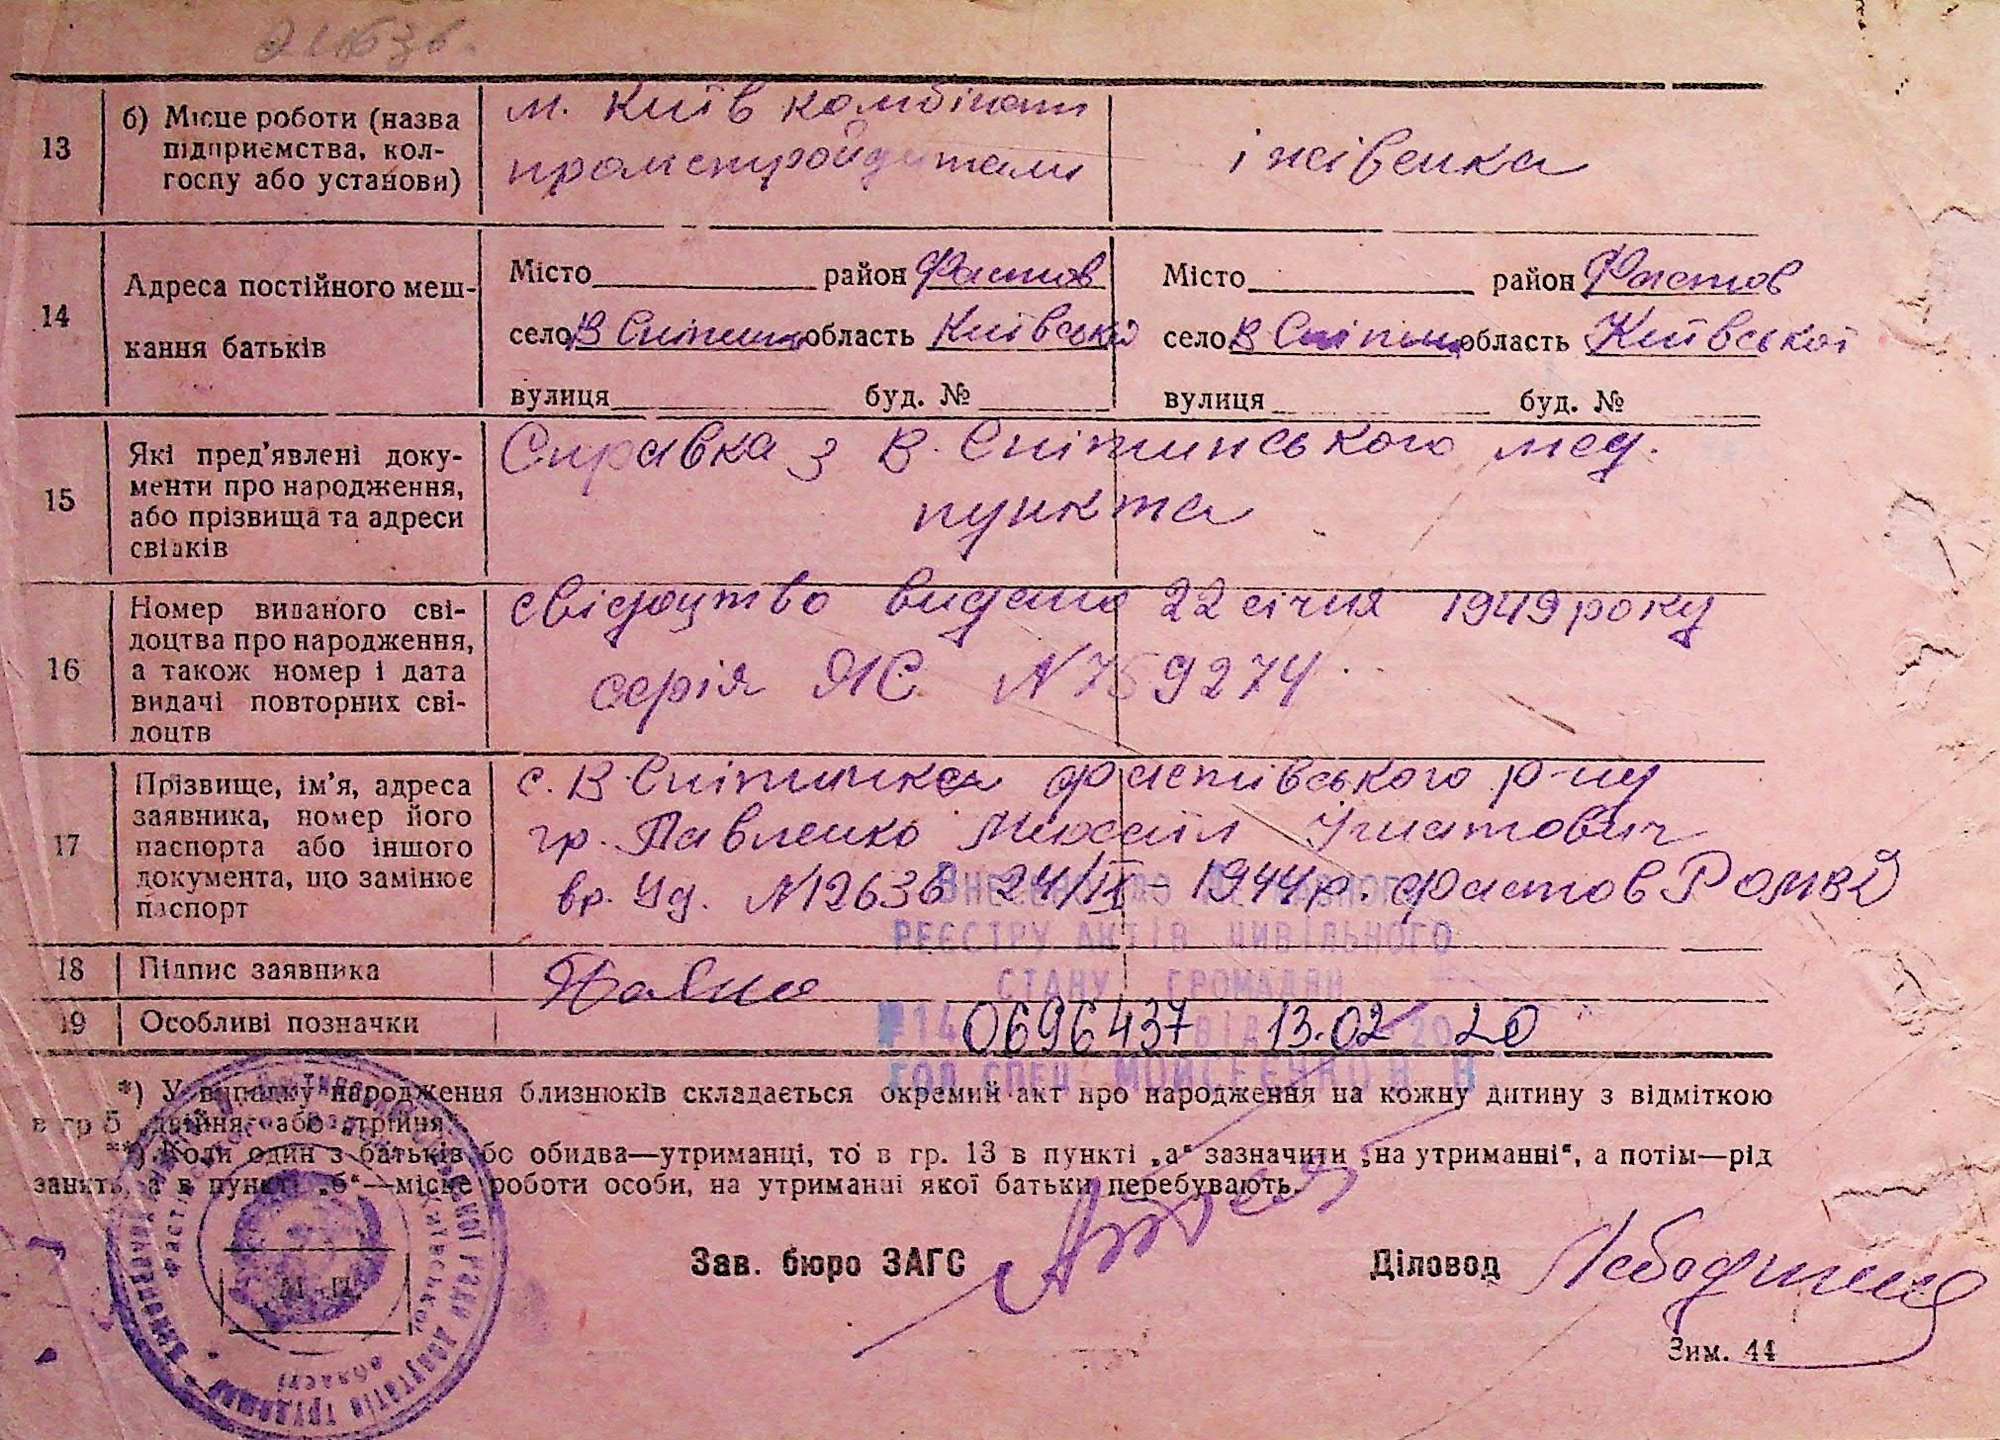 13
б) Місце роботи (назва
підприємства, кол-
госпу або установи)
м. Київ комбінат
промстройдеталі
іжівенка
14
Адреса постійного меш-
кання батьків
Місто район Фастов
село В Снітинка область Київської
вулиця буд. №
Місто район Фастов
село В Снітинка область Київської
вулиця буд. №
15
Які пред'явлені доку-
менти про народження,
або прізвища та адреси
свідків
Справка з В. Снітинського мед.
пункта
16
Номер виданого сві-
доцтва про народження,
а також номер і дата
видачі повторних сві-
доцтв
свідоцтво видано 22 січня 1949 року
серія ЯС N 759274
17
Прізвище, ім'я, адреса
заявника, номер його
паспорта або іншого
документа, що замінює
паспорт
с. В. Снітинка Фастівського р-ну
гр. Павленко Михаіл Ігнатович
вр. Уд. N12636 24/IX - 1944 р. Фастов РОМВД
Внесено до Державного
РЕЄСТРУ АКТІВ ЦИВІЛЬНОГО
СТАНУ ГРОМАДЯН
18
Підпис заявника
19
Особливі позначки
№14 0696437 ВІД 13.02 2020
ГОЛ СПЕЦ МОЙСЕЄНКО Н В
*) У випадку народження близнюків складається окремий акт про народження на кожну дитину з відміткою
в гр 5 „двійня" або „трійня".
**) Коли один з батьків або обидва—утриманці, то в гр. 13 в пункті „а" зазначити „на утриманні", а потім—рід
занять, а в пункті „б"—місце роботи особи, на утриманні якої батьки перебувають.
М. П.
Зав. бюро ЗАГС
Діловод
Зим. 44